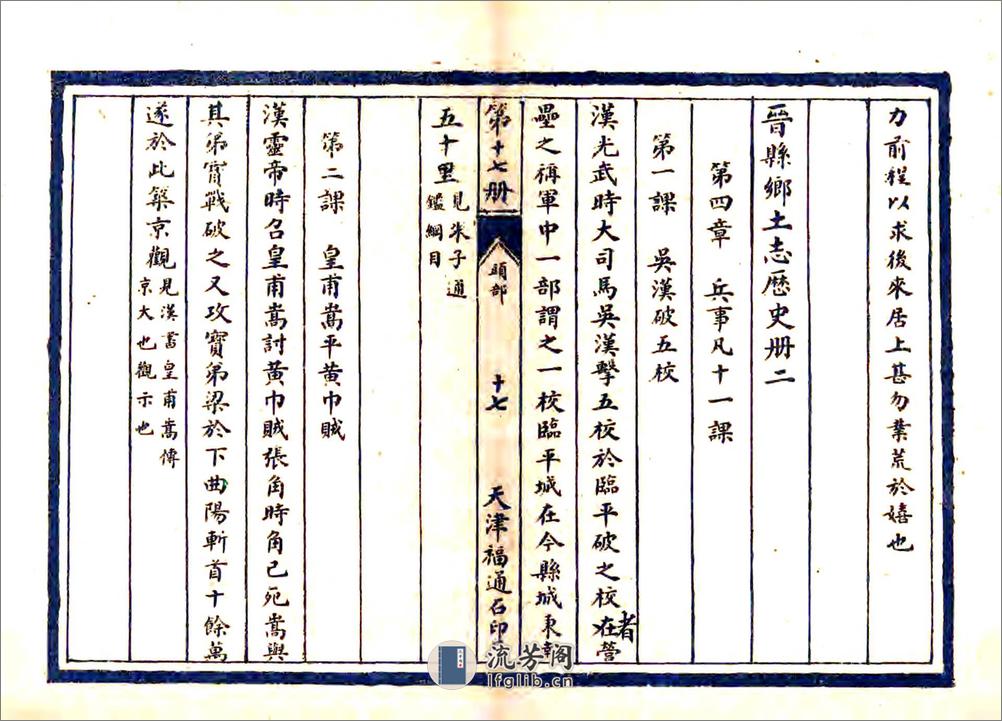 力前程以求後來居上甚勿業荒於嬉也
晉縣鄉土志歷史册二
第四章　兵事凡十一課
第一課　吳漢破五校
漢光武時大司馬吳漢擊五校於臨平破之校者在營
壘之稱軍中一部謂之一校臨平城在今縣城東
第十七册
頭部
十七
天津福通石印
五十里見朱子通
鑑綱目
第二課　皇甫嵩平黄巾賊
漢靈帝時召皇甫嵩討黃巾賊張角時角已死嵩與
其弟寳戰破之又攻寳弟梁於下曲陽斬首十餘萬
遂於此築京觀見漢書皇甫嵩傳
京大也觀示也
流芳阁
lfglib.cn